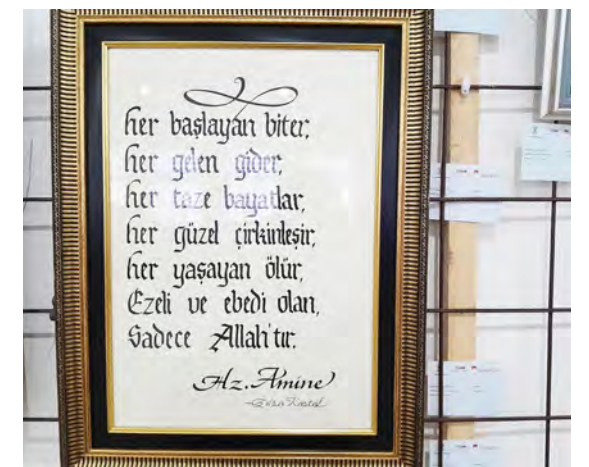 her başlayan biter;
her gelen gider;
her taze bayatlar,
her güzel çirkinleşir,
her yaşayan ölür,
Ezeli ve ebedi olan,
Sadece Allah'tır.
Hz. Amine